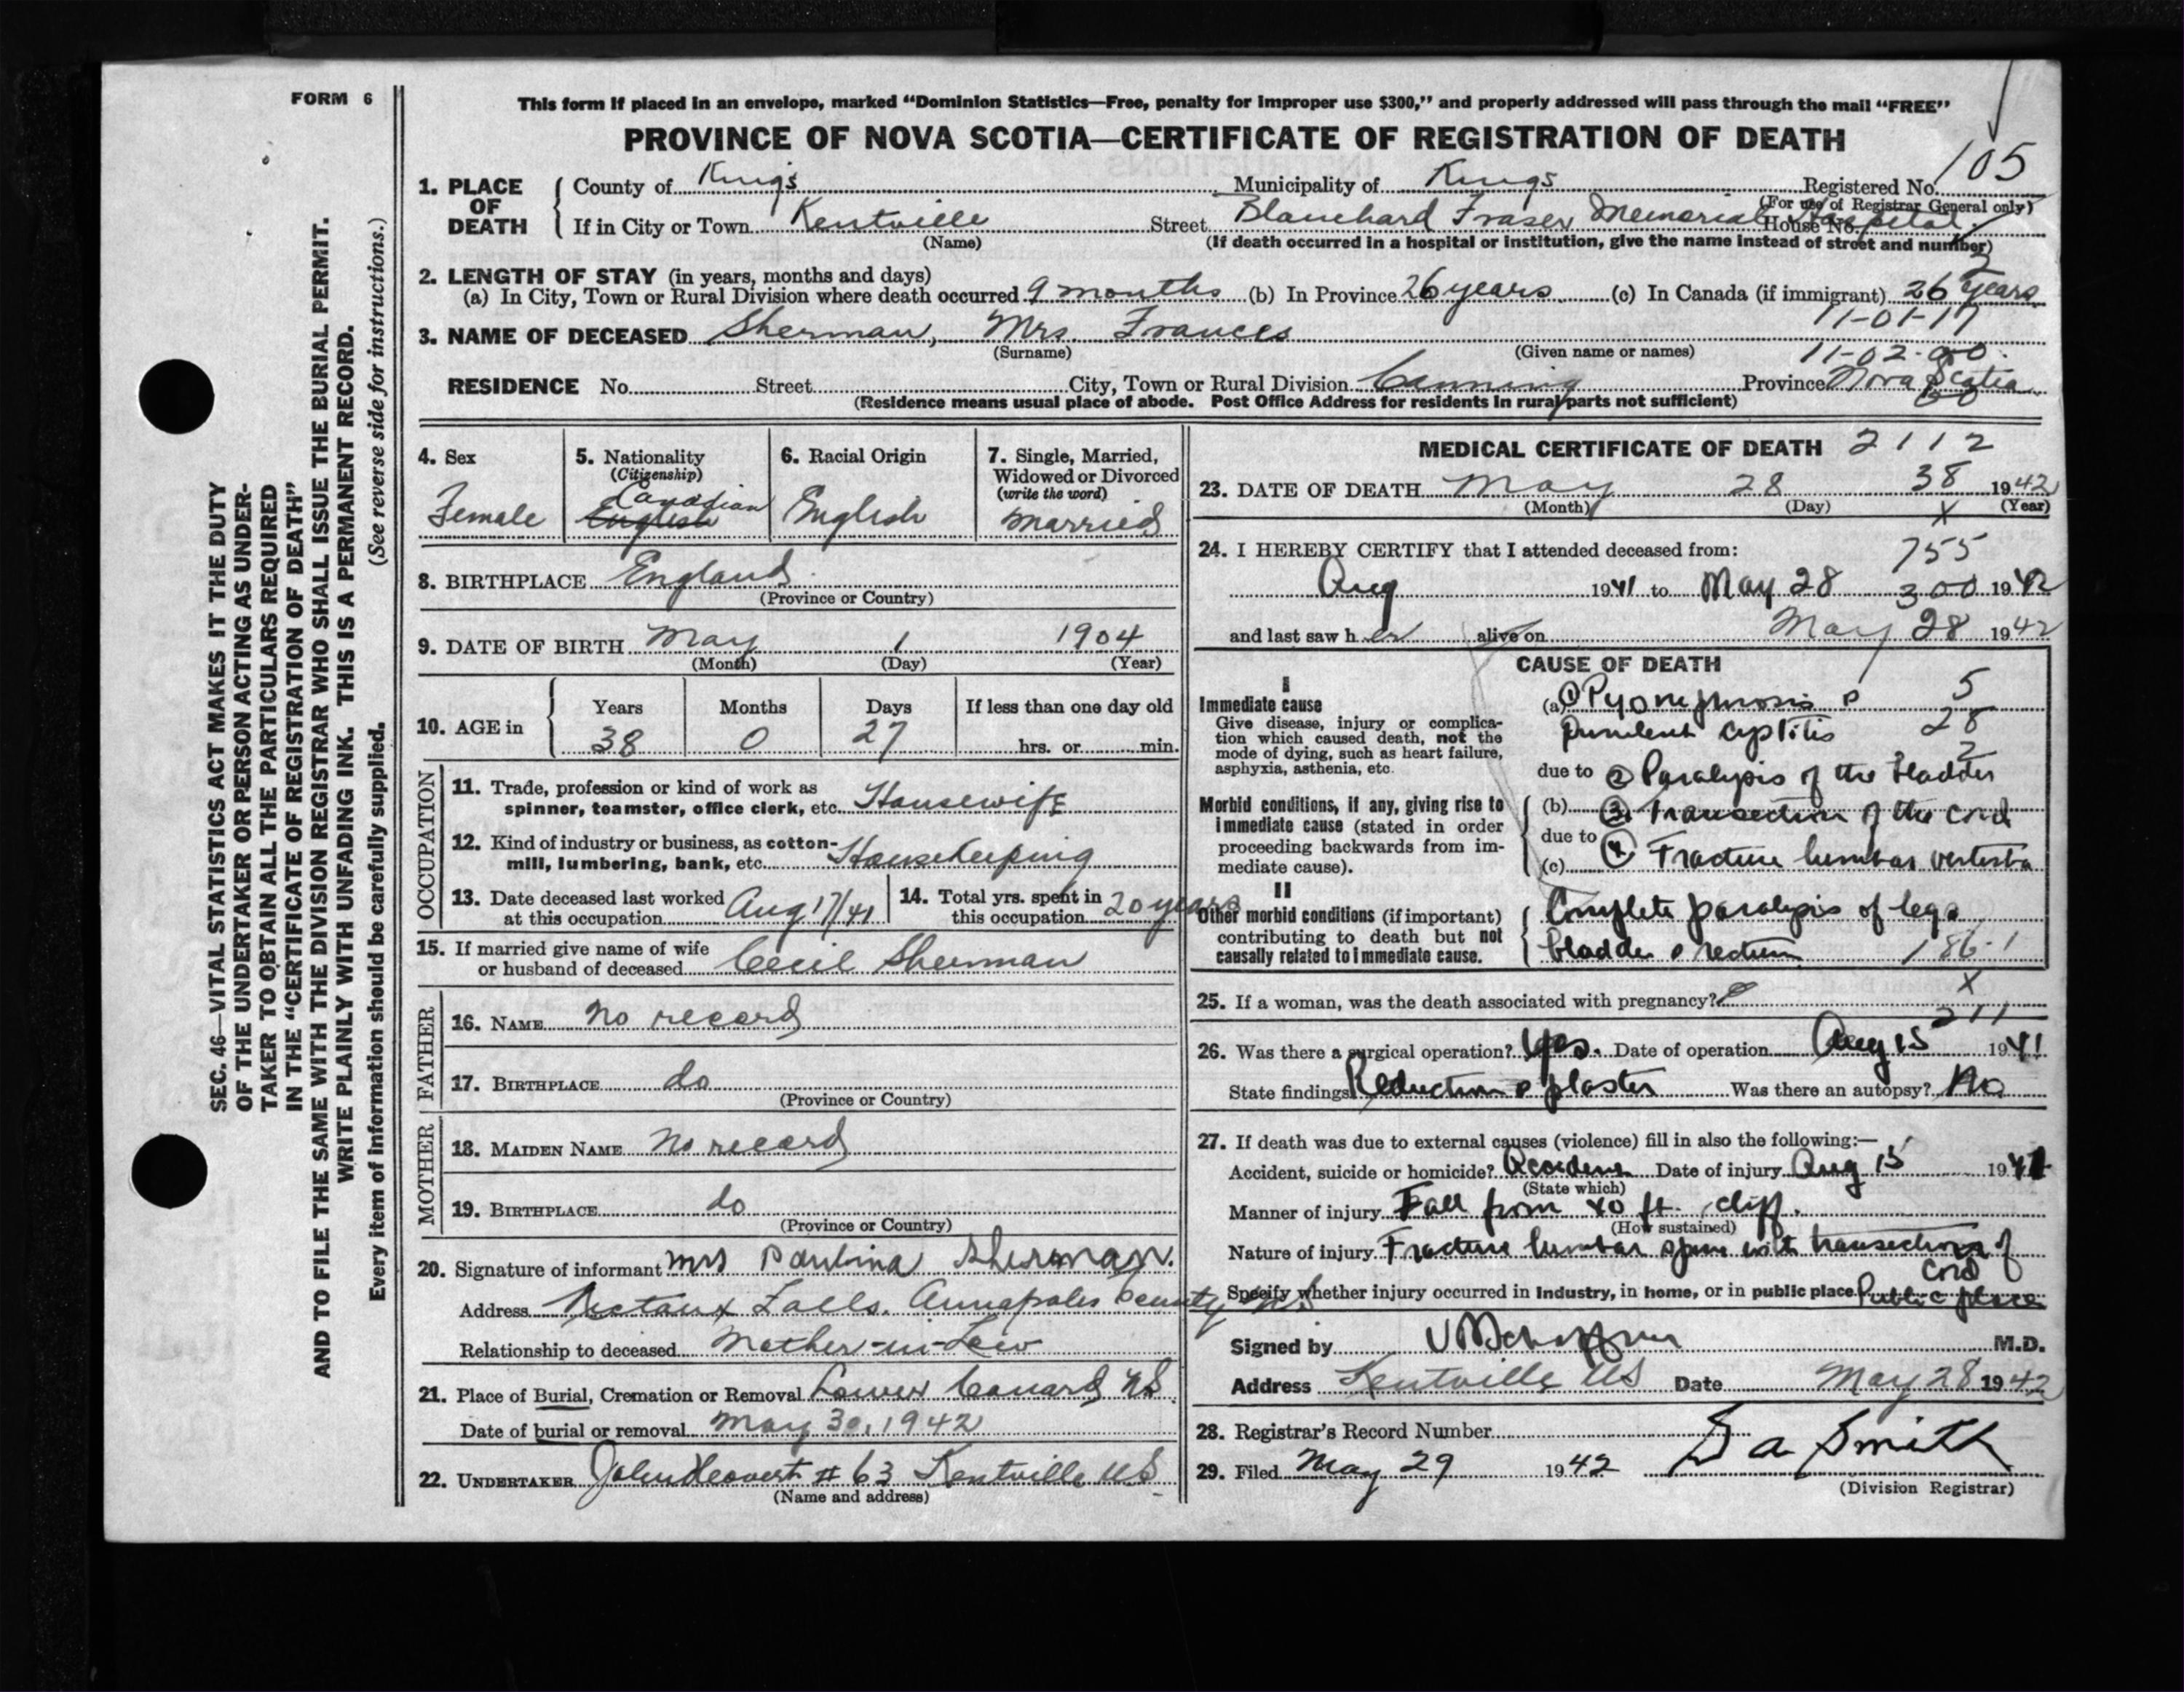 FORM 6
This form if placed in an envelope, marked “Dominion Statistics—Free, penalty for improper use $300,” and properly addressed will pass through the mail “FREE”
PROVINCE OF NOVA SCOTIA—CERTIFICATE OF REGISTRATION OF DEATH
105
1. PLACE OF DEATH County of Kings Municipality of Kings Registered No.
(For use of Registrar General only)
If in City or Town Kentville Street Blanchard Fraser Memorial Hospital House No.
(Name) (If death occurred in a hospital or institution, give the name instead of street and number)
2
2. LENGTH OF STAY (in years, months and days)
(a) In City, Town or Rural Division where death occurred 9 months (b) In Province 26 years (c) In Canada (if immigrant) 26 years
11-01-17
3. NAME OF DECEASED Sherman, Mrs. Frances
(Surname) (Given name or names)
11-02-
RESIDENCE No. Street City, Town or Rural Division Canning Province Nova Scotia
(Residence means usual place of abode. Post Office Address for residents in rural parts not sufficient)
4. Sex Female
5. Nationality (Citizenship) Canadian English
6. Racial Origin English
7. Single, Married, Widowed or Divorced (write the word) Married
8. BIRTHPLACE England
(Province or Country)
9. DATE OF BIRTH May 1 1904
(Month) (Day) (Year)
10. AGE in Years Months Days If less than one day old
38 0 27 hrs. or min.
OCCUPATION
11. Trade, profession or kind of work as
spinner, teamster, office clerk, etc. Housewife
12. Kind of industry or business, as cotton-
mill, lumbering, bank, etc. Housekeeping
13. Date deceased last worked at this occupation Aug 17/41
14. Total yrs. spent in this occupation 20 years
15. If married give name of wife
or husband of deceased Cecil Sherman
FATHER
16. NAME No record
17. BIRTHPLACE do
(Province or Country)
MOTHER
18. MAIDEN NAME No record
19. BIRTHPLACE do
(Province or Country)
20. Signature of informant Mrs Paulina Sherman.
Address Nictaux Falls. Annapolis County NS
Relationship to deceased Mother-in-Law
21. Place of Burial, Cremation or Removal Lower Canard NS
Date of burial or removal May 30, 1942
22. UNDERTAKER John # 63 Kentville NS
(Name and address)
MEDICAL CERTIFICATE OF DEATH 2112
38
23. DATE OF DEATH May 28 1942
(Month) (Day) (Year)
X
24. I HEREBY CERTIFY that I attended deceased from: 755
Aug 1941 to May 28 300 1942
and last saw her alive on May 28 1942
CAUSE OF DEATH
I
Immediate cause
Give disease, injury or complica-
tion which caused death, not the
mode of dying, such as heart failure,
asphyxia, asthenia, etc.
(a) ① Pyonephrosis 5
purulent cystitis 28
2
due to ② Paralysis of the bladder
Morbid conditions, if any, giving rise to
immediate cause (stated in order
proceeding backwards from im-
mediate cause).
(b) ③ Transection of the cord
due to
(c) ④ Fracture lumbar vertebra
II
Other morbid conditions (if important)
contributing to death but not
causally related to immediate cause.
Complete paralysis of legs
bladder rectum 186-1
X
25. If a woman, was the death associated with pregnancy?
211
26. Was there a surgical operation? Yes. Date of operation Aug 15 1941
State findings Reduction plaster Was there an autopsy? No
27. If death was due to external causes (violence) fill in also the following:—
Accident, suicide or homicide? Accident Date of injury Aug 15 1941
(State which)
Manner of injury Fall from 40 ft. cliff.
(How sustained)
Nature of injury Fracture lumbar spine with transection of
cord
Specify whether injury occurred in industry, in home, or in public place Public place
Signed by M.D.
Address Kentville NS Date May 28 1942
28. Registrar's Record Number
29. Filed May 29 1942 Smith
(Division Registrar)
SEC. 46—VITAL STATISTICS ACT MAKES IT THE DUTY
OF THE UNDERTAKER OR PERSON ACTING AS UNDER-
TAKER TO OBTAIN ALL THE PARTICULARS REQUIRED
IN THE “CERTIFICATE OF REGISTRATION OF DEATH”
AND TO FILE THE SAME WITH THE DIVISION REGISTRAR WHO SHALL ISSUE THE BURIAL PERMIT.
WRITE PLAINLY WITH UNFADING INK. THIS IS A PERMANENT RECORD.
Every item of information should be carefully supplied. (See reverse side for instructions.)